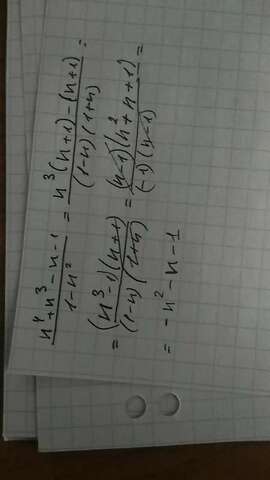 (n⁴ + n³ - n - 1) / (1 - n²) = (n³(n+1) - (n+1)) / ((1-n)(1+n)) =
= ((n³ - 1)(n+1)) / ((1-n)(1+n)) = ((n-1)(n² + n + 1)) / ((-1)(n-1)) =
= -n² - n - 1